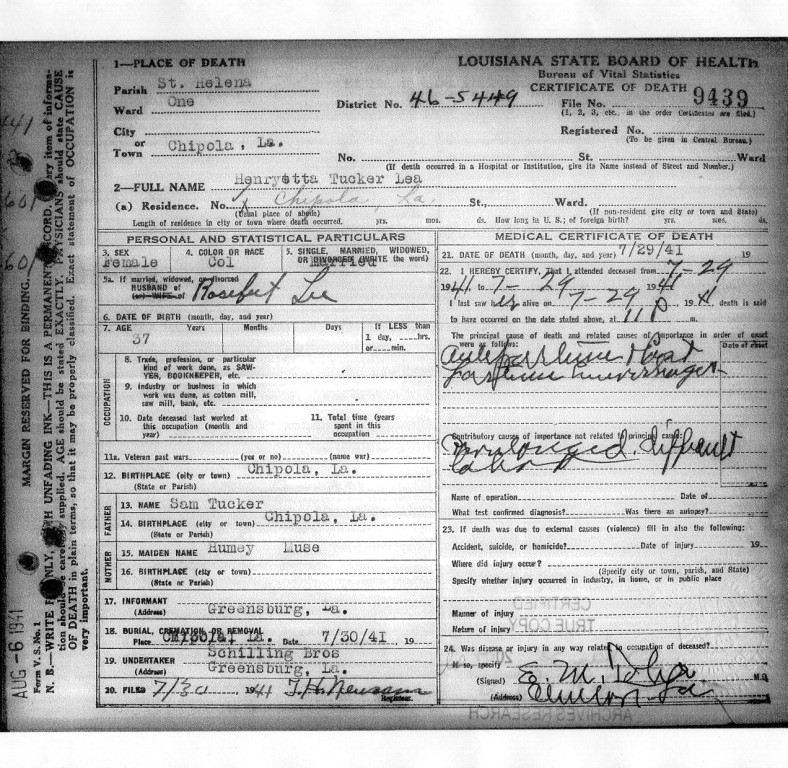 1—PLACE OF DEATH
Parish St. Helena
Ward One
City or Town Chipola, La.
LOUISIANA STATE BOARD OF HEALTH
Bureau of Vital Statistics
CERTIFICATE OF DEATH
District No. 46-5449
File No. 9439
(1, 2, 3, etc., in the order Certificates are filed.)
Registered No.
(To be given in Central Bureau.)
No. St. Ward
(If death occurred in a Hospital or Institution, give its Name instead of Street and Number.)
2—FULL NAME Henryetta Tucker Lea
(a) Residence. No. Chipola La. St., Ward.
(Usual place of abode) (If non-resident give city or town and State)
Length of residence in city or town where death occurred. yrs. mos. ds. How long in U. S.; of foreign birth? yrs. mos. ds.
PERSONAL AND STATISTICAL PARTICULARS
3. SEX 4. COLOR OR RACE 5. SINGLE, MARRIED, WIDOWED, OR DIVORCED (WRITE the word)
Female Col Married
5a. If married, widowed, or divorced
HUSBAND of
(or) WIFE of Lee
6. DATE OF BIRTH (month, day, and year)
7. AGE Years Months Days If LESS than
37 1 day, hrs.
or min.
OCCUPATION
8. Trade, profession, or particular
kind of work done, as SAW-
YER, BOOKKEEPER, etc.
9. industry or business in which
work was done, as cotton mill,
saw mill, bank, etc.
10. Date deceased last worked at
this occupation (month and
year)
11. Total time (years
spent in this
occupation
11a. Veteran past wars. (yes or no) (name war)
12. BIRTHPLACE (city or town) Chipola, La.
(State or Parish)
FATHER
13. NAME Sam Tucker
14. BIRTHPLACE (city or town) Chipola, La.
(State or Parish)
MOTHER
15. MAIDEN NAME Humey Muse
16. BIRTHPLACE (city or town)
(State or Parish)
17. INFORMANT
(Address) Greensburg, La.
18. BURIAL, CREMATION OR REMOVAL
Place Chipola, La. Date 7/30/41 , 19
19. UNDERTAKER Schilling Bros
(Address) Greensburg, La.
20. FILED 7/30, 1941 T. H. Newsom
Registrar.
MEDICAL CERTIFICATE OF DEATH
21. DATE OF DEATH (month, day, and year) 7/29/41 19
22. I HEREBY CERTIFY, That I attended deceased from 7-29
1941 to 7-29 1941
I last saw her alive on 7-29 1941 death is said
to have occurred on the date stated above, at 11 P m.
The principal cause of death and related causes of importance in order of onset
were as follows: Date of onset
Contributory causes of importance not related to principal cause:
Prolonged, difficult
labor
Name of operation Date of
What test confirmed diagnosis? Was there an autopsy?
23. If death was due to external causes (violence) fill in also the following:
Accident, suicide, or homicide? Date of injury 19
Where did injury occur?
(Specify city or town, parish, and State)
Specify whether injury occurred in industry, in home, or in public place
Manner of injury
Nature of injury
CERTIFIED
TRUE COPY
24. Was disease or injury in any way related to occupation of deceased?
If so, specify
(Signed) E. M. M.D.
(Address) Clinton, La
ARCHIVES RESEARCH
MARGIN RESERVED FOR BINDING.
AUG -6 1941
Form V. S. No. 1